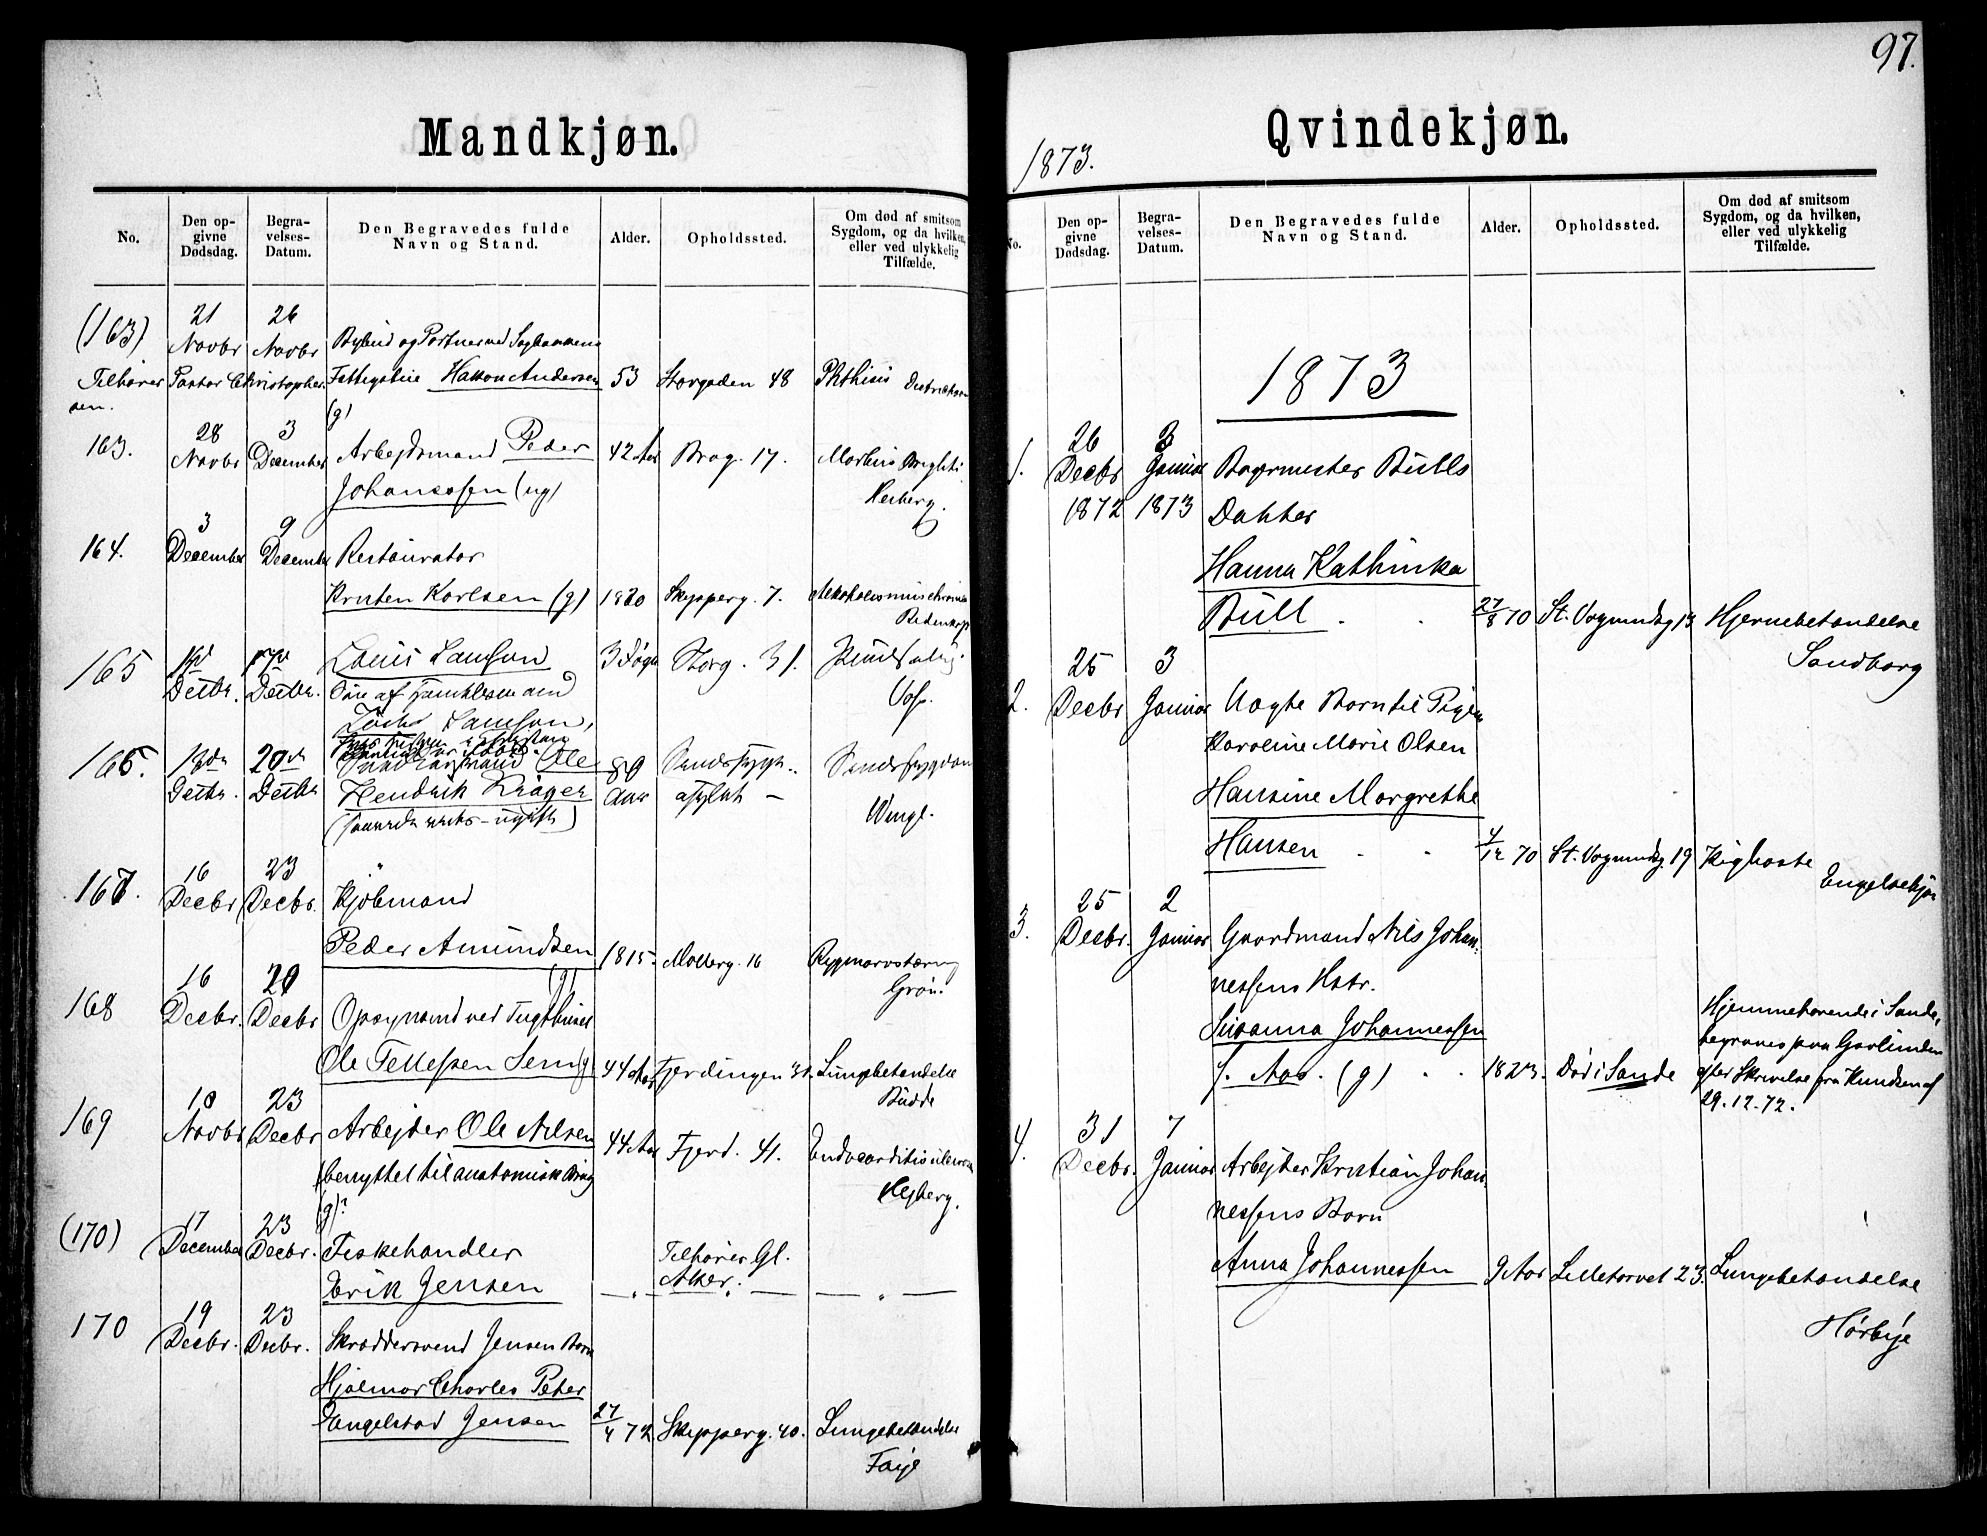 97.
Mandkjøn.
No.
Den opgivne Dødsdag.
Begravelses-Datum.
Den Begravedes fulde Navn og Stand.
Alder.
Opholdssted.
Om død af smitsom Sygdom, og da hvilken, eller ved ulykkelig Tilfælde.
(163) 21 Novbr 26 Novbr
Tilhører Pastor Christophersen.
Hakon Andersen 53 Storgaden 48 Phthisis
(g)
163. 28 Novbr 3 December Arbeidsmand Peder 42 Aar Brog. 17. Morbus Brighti
Johansssen (ug) Heiberg.
164. 3 December 9 December Restauratør
Karlsen (g) 1820 Skipperg. 7.
165 Decbr. Decbr. Louis Lamson 3 Storg. 31.
Lamson,
Voss.
166. Decbr. Decbr. Ole 80 Aar
Hendrik Krøger
Sindssygdom
Winge.
167. 16 Decbr 23 Decbr. Kjøbmand
Peder Amundsen 1815. Møllerg. 16 Rygmarvstæring
(g) Grøn.
168 16 Decbr. 20 Decbr Opsynsmand ved Tugthuset
Ole Tellefsen Sem (g) 44 Aar Fjerdingen 31. Lungebetændelse
Budde
169 10 Novbr 23 Decbr Arbejder Ole Nilsen 44 Aar Fjerd. 41. Endocarditis
(benyttet til anatomisk Brug
(g)?
Hejberg.
(170) 17 December 23 Decbr. Fiskehandler Tilhører Gl. Aker.
Erik Jensen
170 19 Decbr. 23 Decbr. Skræddersvend Jensens Barn
Hjalmar Charles Peter
Engelstad Jensen 27/4 72 Skipperg. 40. Lungebetændelse
Faye
Qvindekjøn.
1873.
No.
Den opgivne Dødsdag.
Begravelses-Datum.
Den Begravedes fulde Navn og Stand.
Alder.
Opholdssted.
Om død af smitsom Sygdom, og da hvilken, eller ved ulykkelig Tilfælde.
1873
1. 26 Decbr 1872 3 Januar 1873 Borgermester Bulls
Datter
Hanna Kathinka
Bull 27/8 70 St. Vognmdsg 13 Hjernebetændelse
Sandborg
2. 25 Decbr 3 Januar Uægte Barn til Pigen
Karoline Marie Olsen
Hansine Margrethe
Hansen 4/12 70 St. Vognmdsg. 19 Kighoste
Engelskjøn
3. 25 Decbr. 2 Januar Gaardmand Nils Johannessens Hstr.
Susanna Johannessen
f. Aas. (g) 1823. Død i Sande
Hjemmehørende i Sande,
begraves paa Gravlunden
efter Skrivelse fra Knudsen af
29.12.72.
4. 31 Decbr. 7 Januar Arbejder Kristian Johannessens Barn
Anna Johannessen 9 Aar Lilletorvet 23. Lungebetændelse
Hørbye